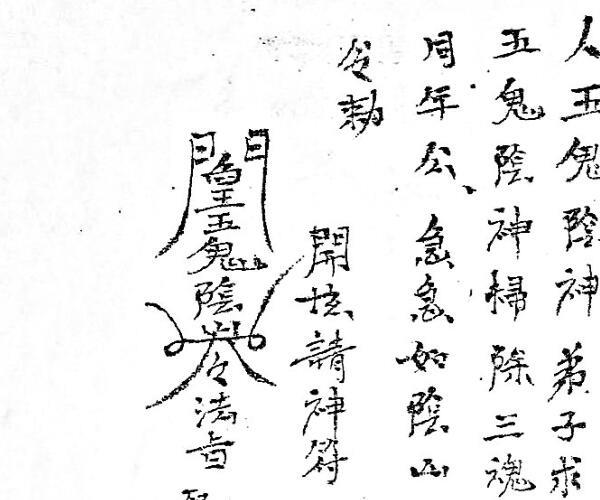 人五鬼陰神弟子求
五鬼陰神掃除三魂
周年公、急急如陰山
令勅
開壇請神符
皇五鬼陰山令法旨